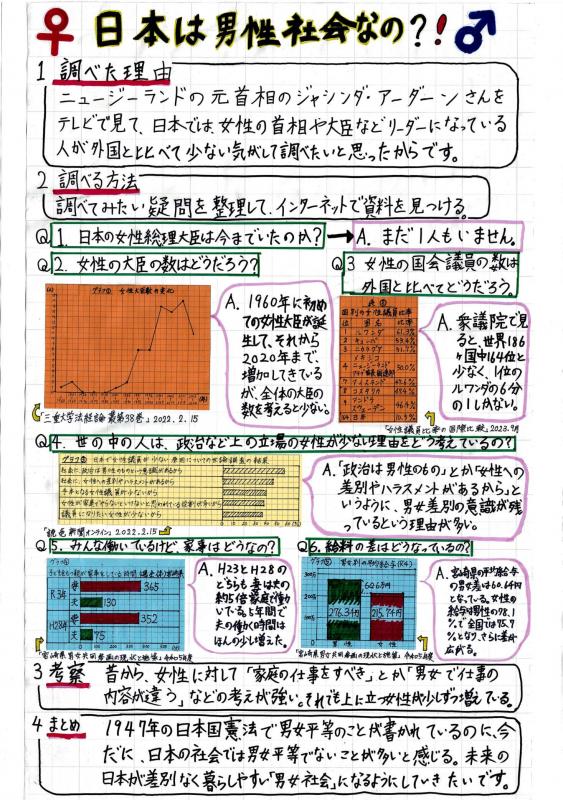 ♀日本は男性社会なの?!♂
1 調べた理由
ニュージーランドの元首相のジャシンダ・アーダーンさんを
テレビで見て、日本では女性の首相や大臣などリーダーになっている
人が外国と比べて少ない気がして調べたいと思ったからです。
2 調べる方法
調べてみたい疑問を整理して、インターネットで資料を見つける。
Q1. 日本の女性総理大臣は今までいたのか?
A. まだ1人もいません。
Q2. 女性の大臣の数はどうだろう?
グラフ① 女性大臣数の変化
A. 1960年に初め
ての女性大臣が誕
生して、それから
2020年まで、
増加してきている
が、全体の大臣の
数を考えると少ない。
「三重大学法経論叢第38巻」2022.2.15
Q3 女性の国会議員の数は
外国と比べてどうだろう。
表①
国別の女性議員比率
位 国名 比率
1 ルワンダ 61.3%
2 キューバ 53.4%
3 ニカラグア 51.7%
メキシコ
4 ニュージーランド 50.0%
アラブ首長国連邦
A. 衆議院で見
ると、世界186
ヶ国中164位と
少なく、1位の
ルワンダの6分
の1しかない。
「女性議員比率の国際比較」2023.9月
Q4. 世の中の人は、政治など上の立場の女性が少ない理由をどう考えているの?
A.「政治は男性のもの」とか「女性への
差別やハラスメントがあるから」と
いうように、男女差別の意識が残
っているという理由が多い。
「読売新聞オンライン」2022.2.15
Q5. みんな働いているけど、家事はどうなの?
R3年
妻 365
夫 130
H28年
妻 352
夫 75
A. H23とH28の
どちらも妻は夫の
約5倍家庭で働か
いている。5年間で
夫の働く時間は
ほんの少し増えた。
「宮崎県男女共同参画の現状と施策」令和5年度
Q6. 給料の差はどうなっているの?
グラフ④ 男女別の月平均給与(R4)
276.3千円
60.6千円
215.7千円
男性 女性
A. 宮崎県の平均給与
の男女差は60.6千円
となっている。女性の
給与は男性の78.1
%で全国では75.7
%となり、さらに差が
広がる。
「宮崎県男女共同参画の現状と施策」令和5年度
3 考察
昔から、女性に対して「家庭の仕事をすべき」とか「男女で仕事の
内容が違う」などの考えが強い。それでも上に立つ女性が少しずつ増えている。
4 まとめ
1947年の日本国憲法で男女平等のことが書かれているのに、今
だに、日本の社会では男女平等でないことが多いと感じる。未来の
日本が差別なく暮らしやすい「男女社会」になるようにしていきたいです。